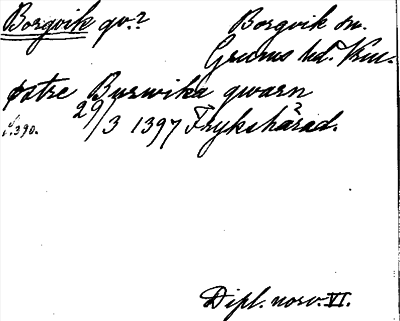 Borgvik qv.? Borgvik sn.
Grums hd. Krn.
østre Burwika qwarn
s. 390. 29/3 1397 Frykshärad.
Dipl. norv. VI.